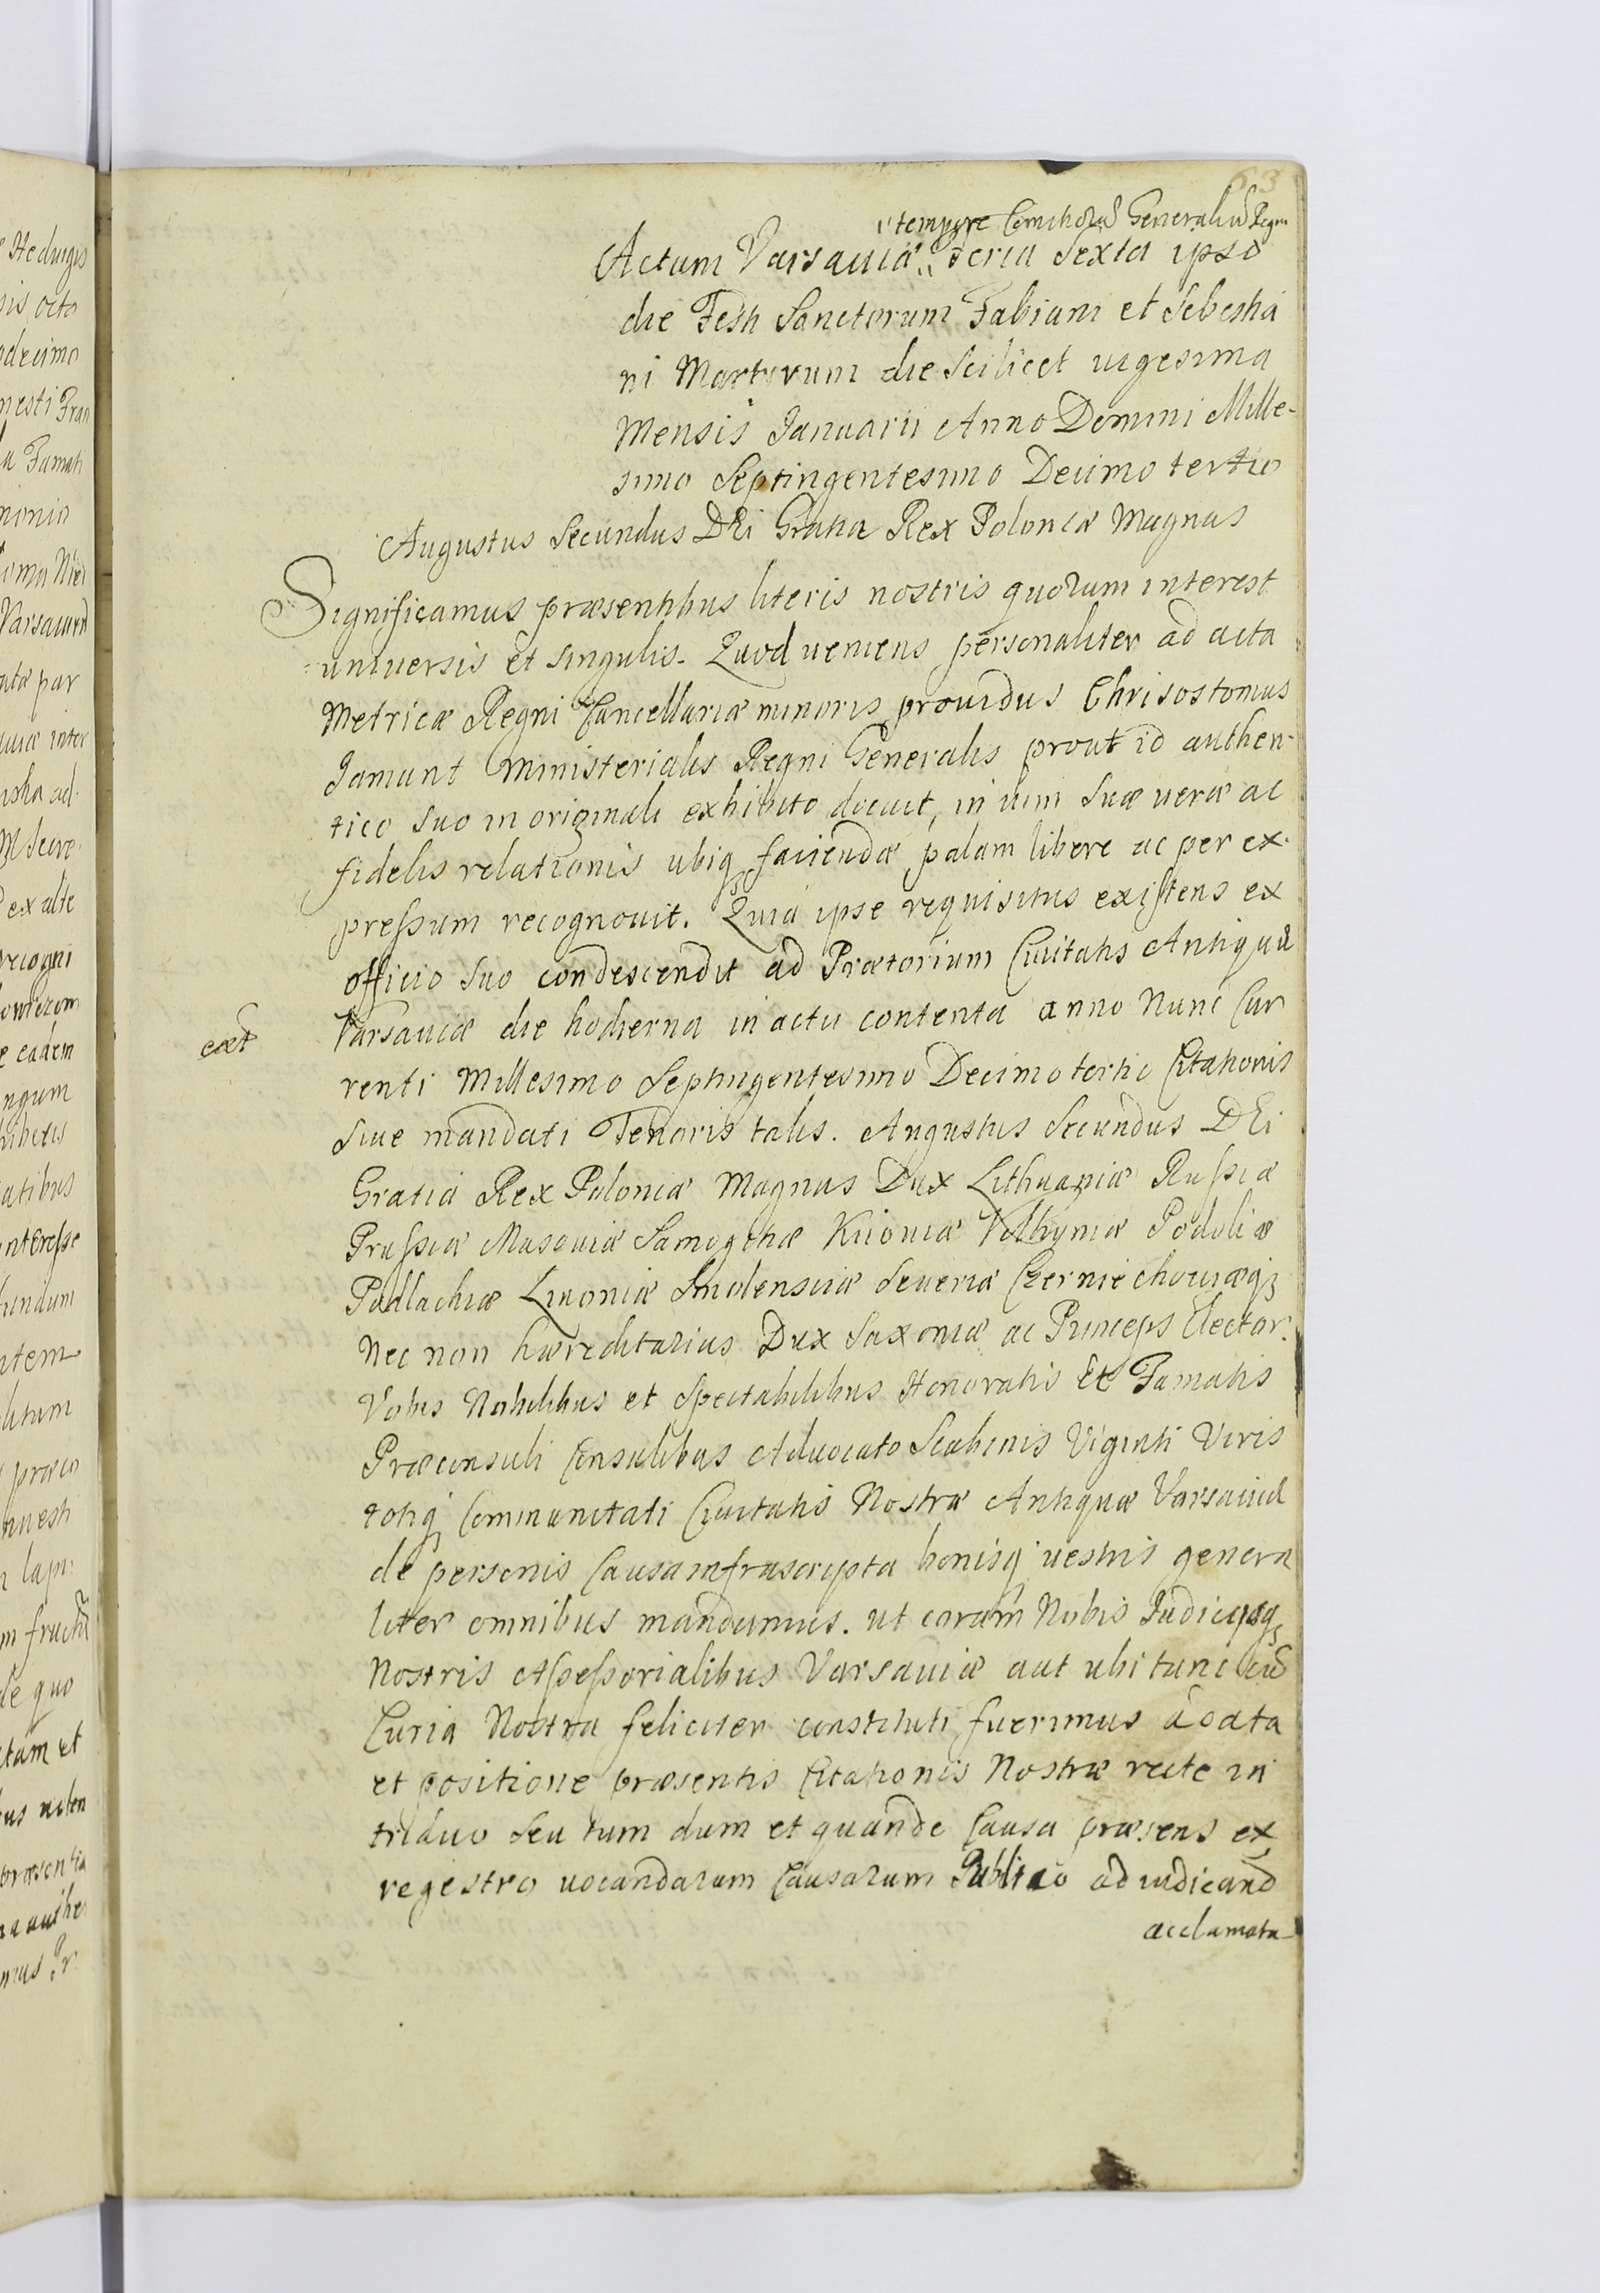 63
"tempore Comitiorũ Generaliũ Regni
Actum Varsaviæ „ Feria Sexta ipso
die Festi Sanctorum Fabiani et Sebestia
ni Martyrum die Scilicet vigesima
Mensis Januarii Anno Domini Mille-
simo Septingentesimo Decimo tertio
Augustus Secundus DEi Gratia Rex Poloniæ Magnus
Significamus præsentibus literis nostris quorum interest
universis et singulis. Quod veniens personaliter ad acta
Metricæ Regni Cancellariæ minoris providus Chrisostomus
Jamunt Ministerialis Regni Generalis prout id authen-
tico suo in originali exhibito docuit, in vim suæ veræ ac
fidelis relationis ubiq3 faciendæ palam libere ac per ex-
pressum recognovit. Quia ipse requisitus existens ex
officio suo condescendit ad Prætorium Civitatis Antiquæ
Varsaviæ die hodierna in actu contenta anno Nunc Cur
renti Millesimo Septingentesimo Decimo tertio Citationis
sive mandati Tenoris talis. Augustus Secundus DEi
Gratia Rex Poloniæ Magnus Dux Lithuaniæ Russiæ
Prussiæ Masoviæ Samogitiæ Kiioviæ Volhyniæ Podoliæ
Podlachiæ Livoniæ Smolensciæ Severiæ Czerniechoviæq3
Nec non hæreditarius Dux Saxoniæ ac Princeps Elector.
Vobis Nobilibus et Spectabilibus Honoratis Et Famatis
Præconsuli Consulibus Advocato Scabinis Viginti Viris
totiq3 Communitati Civitatis Nostræ Antiquæ Varsaviæ
de personis Causa infrascripta bonisq3 vestris genera
liter omnibus mandamus. ut coram Nobis Judiciisq3
Nostris Assessorialibus Varsaviæ aut ubi tunc cũ
Curia Nostra feliciter constituti fuerimus a data
et positione præsentis Citationis Nostræ recte in
triduo seu tum dum et quando Causa præsens ex
regestro vocandarum Causarum Publico ad iudicand
acclamata